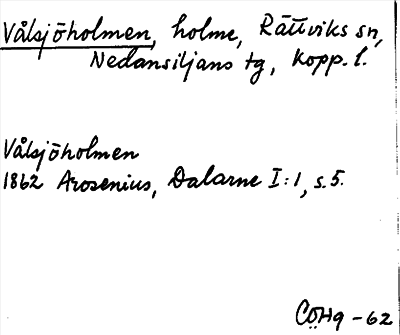 Vålsjöholmen, holme, Rättviks sn,
Nedansiljans tg, Kopp. l.
Vålsjöholmen
1862 Arosenius, Dalarne I:1, s.5.
CÖHg -62